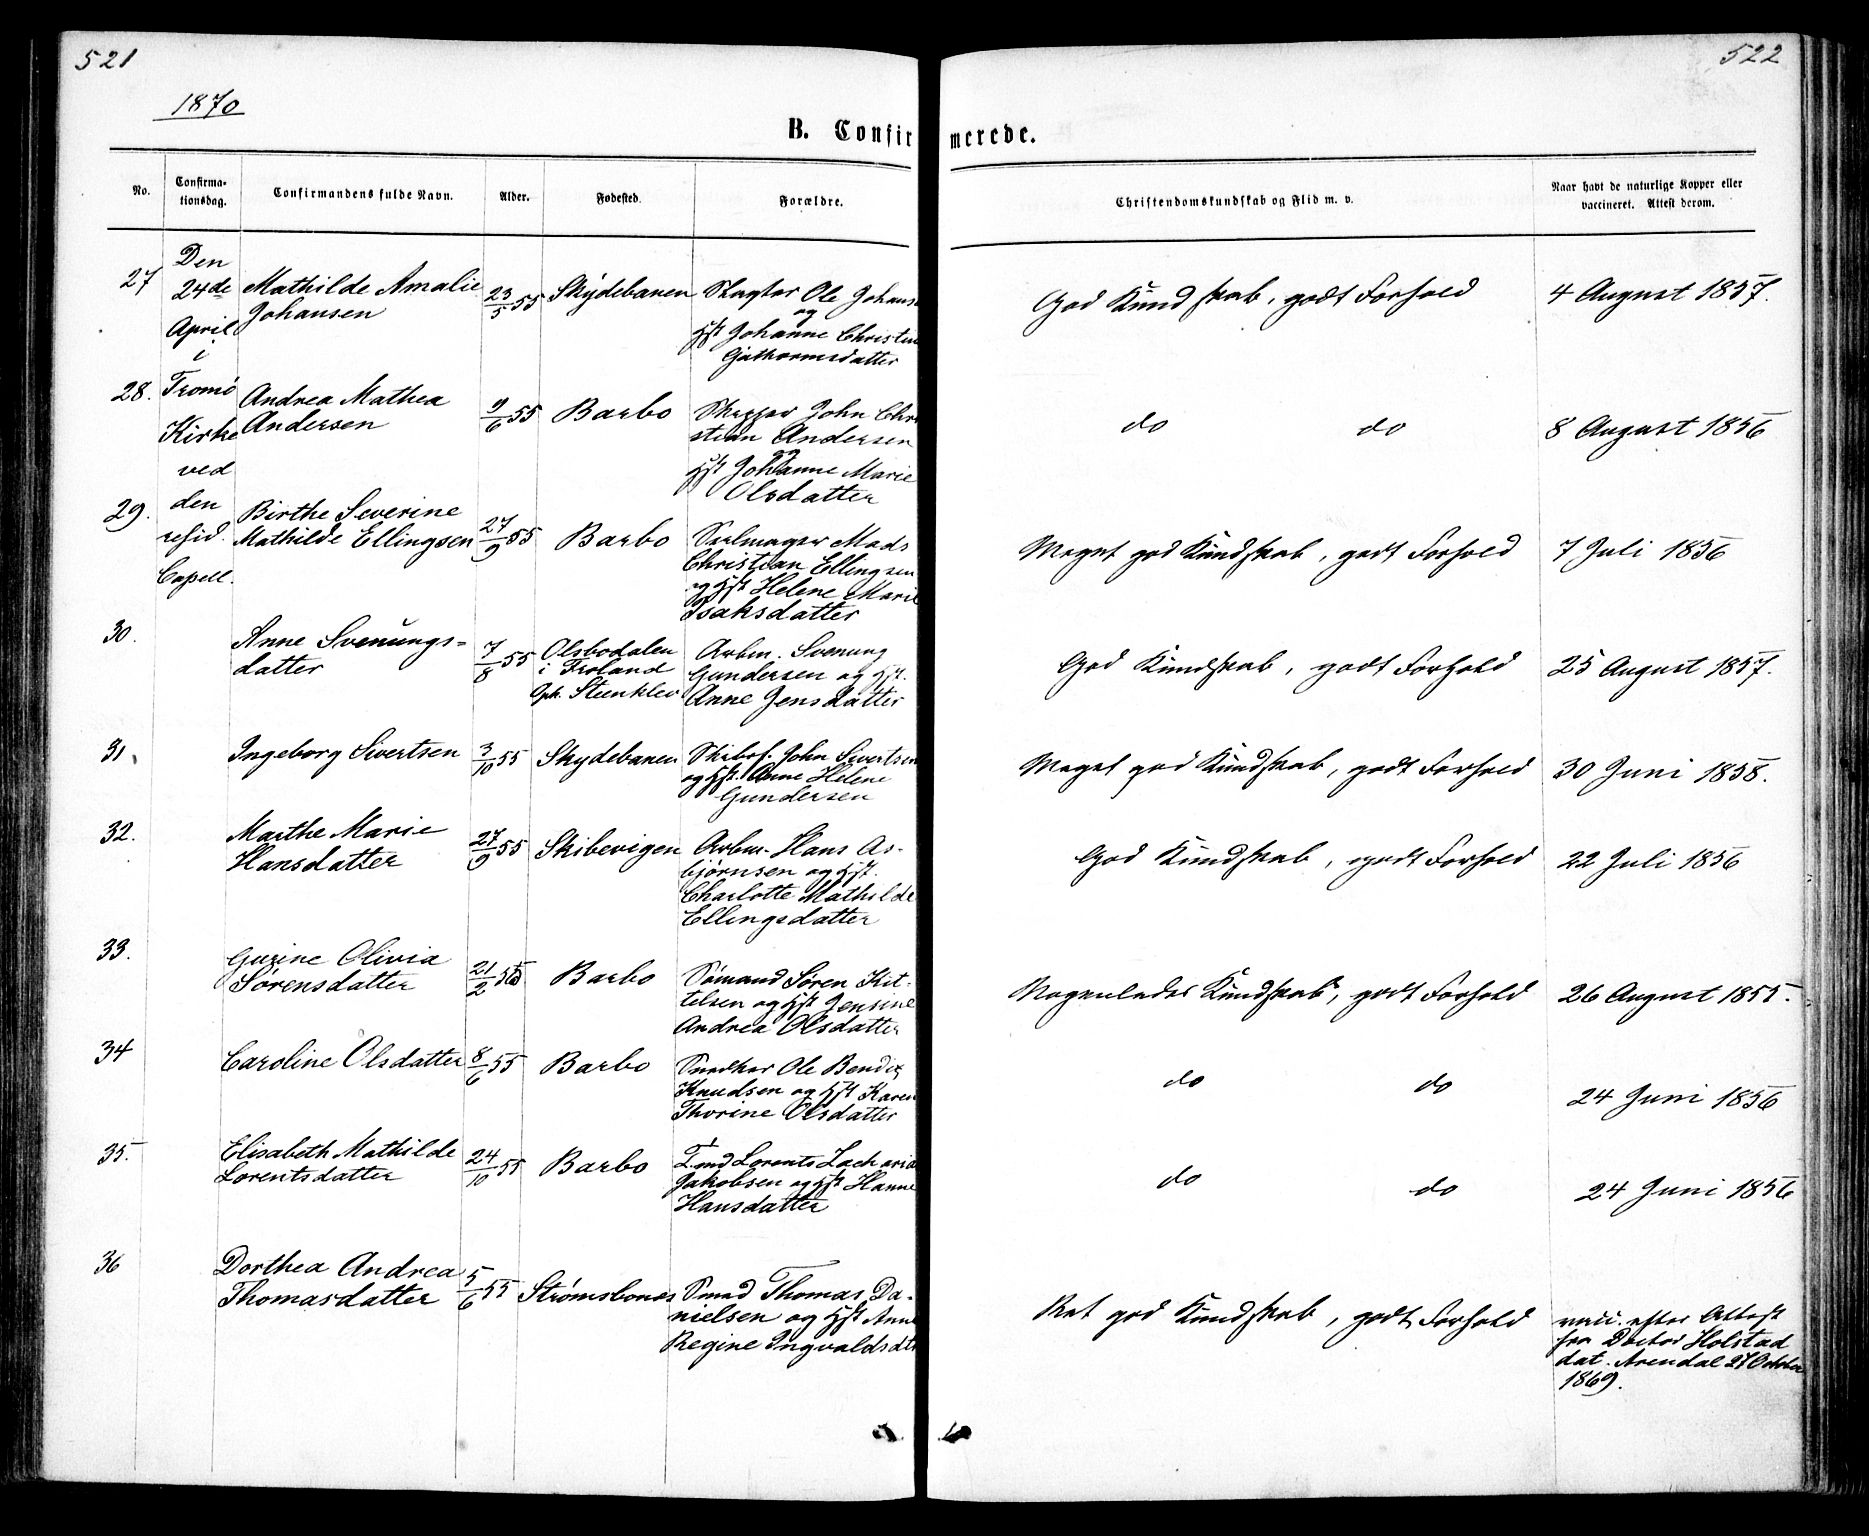 521
522
1870
B. Confirmerede.
No.
Confirma-
tionsdag.
Confirmandens fulde Navn.
Alder.
Fødested.
Forældre.
Christendomskundskab og Flid m. v.
Naar havt de naturlige Kopper eller
vaccineret. Attest derom.
Den
24de
April
i
Tromö
Kirke
ved
den
resid.
Capell.
27
Mathilde Amalie
Johansen
23/5 55
Skydebanen
Ole Johans
og
Hst Johanne Christin
God Kundskab, godt Forhold
4 August 1857.
28.
Andrea Mathea
Andersen
9/6 55
Barbo
Skipper John Chri
stian Andersen
og
Hst Johanne Marie
Olsdatter
do do
8 August 1856
29.
Birthe Severine
Mathilde Ellingsen
27/9 55
Barbo
Seilmager Mads
Christian Ellingsen
og Hst Helene Marie
Isaksdatter
Meget god Kundskab, godt Forhold
7 Juli 1856
30.
Anne Svenungs-
datter
7/8 55
Olsbodalen
i Froland
Oph. Steenklev
Arbm. Svenung
Gundersen og Hst.
Anne Jensdatter
God Kundskab, godt Forhold
25 August 1857.
31.
Ingeborg Sivertsen
3/10 55
Skydebanen
John Sivertsen
og Hst. Anne Helene
Gundersen
Meget god Kundskab, godt Forhold
30 Juni 1858.
32.
Marthe Marie
Hansdatter
27/9 55
Skibevigen
Arbm. Hans As-
bjørnsen og Hst.
Charlotte Mathilde
Ellingsdatter
God Kundskab, godt Forhold
22 Juli 1856
33.
Gurine Olivia
Sørensdatter
21/2 55
Barbo
Sømand Søren Kit-
telsen og Hst Jensine
Andrea Olsdatter
Nogenledes Kundskab, godt Forhold
26 August 1855.
34
Caroline Olsdatter
8/6 55
Barbo
Snedker Ole Bendix
Knudsen og Hst Karen
Thorine Olsdatter
do do
24 Juni 1856
35.
Elisabeth Mathilde
Lorentsdatter
24/10 55
Barbo
Lorents Zacharia
Jakobsen og Hst Hanne
Hansdatter
do do
24 Juni 1856
36
Dorthea Andrea
Thomasdatter
5/6 55
Strømsbonæs
Smed Thomas Da-
nielsen og Hst Anne
Regine Ingvaldsdtr
Ret god Kundskab, godt Forhold
vacc. efter Attest
fra Doctor Holstad
dat. Arendal 27 October
1869.